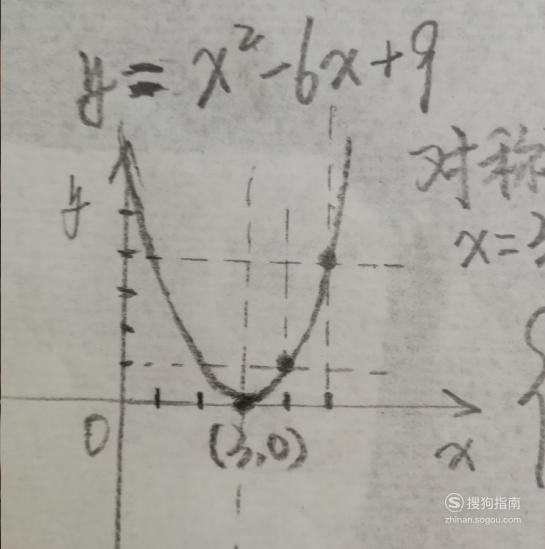 y = x²-6x+9
对称
y
x=3
0
(3,0)
x
搜狗指南
zhinan.sogou.com